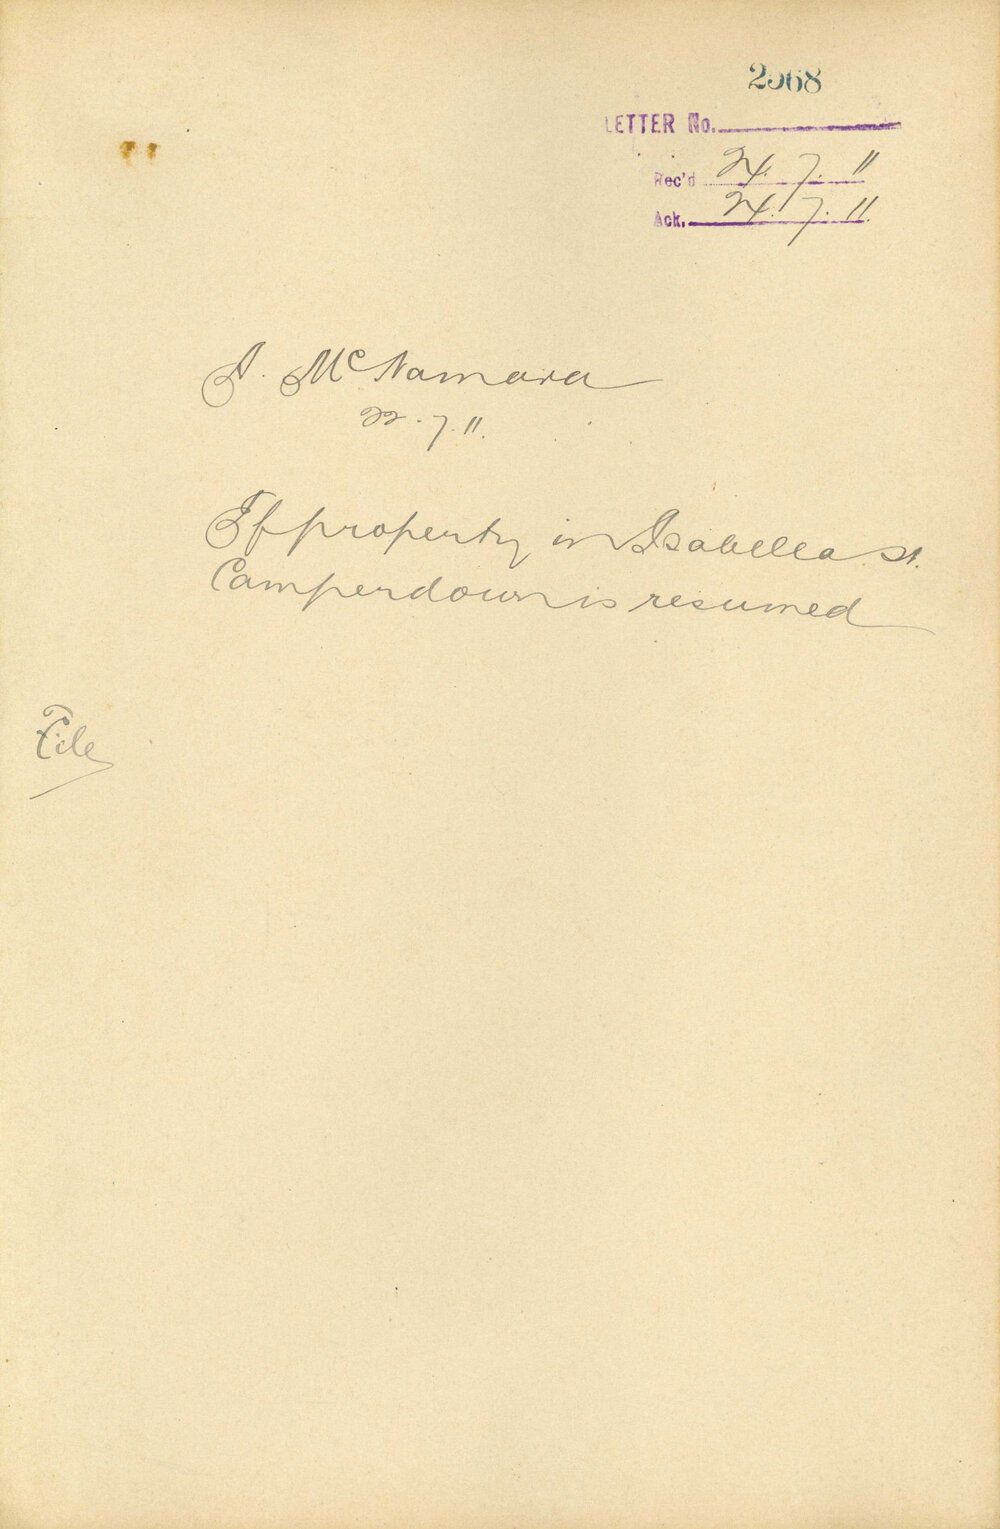 2968
LETTER No.
Rec'd 24. 7. 11
Ack. 24. 7. 11.
McNamara
22. 7. 11.
If property in Isabella St.
Camperdown is resumed
File